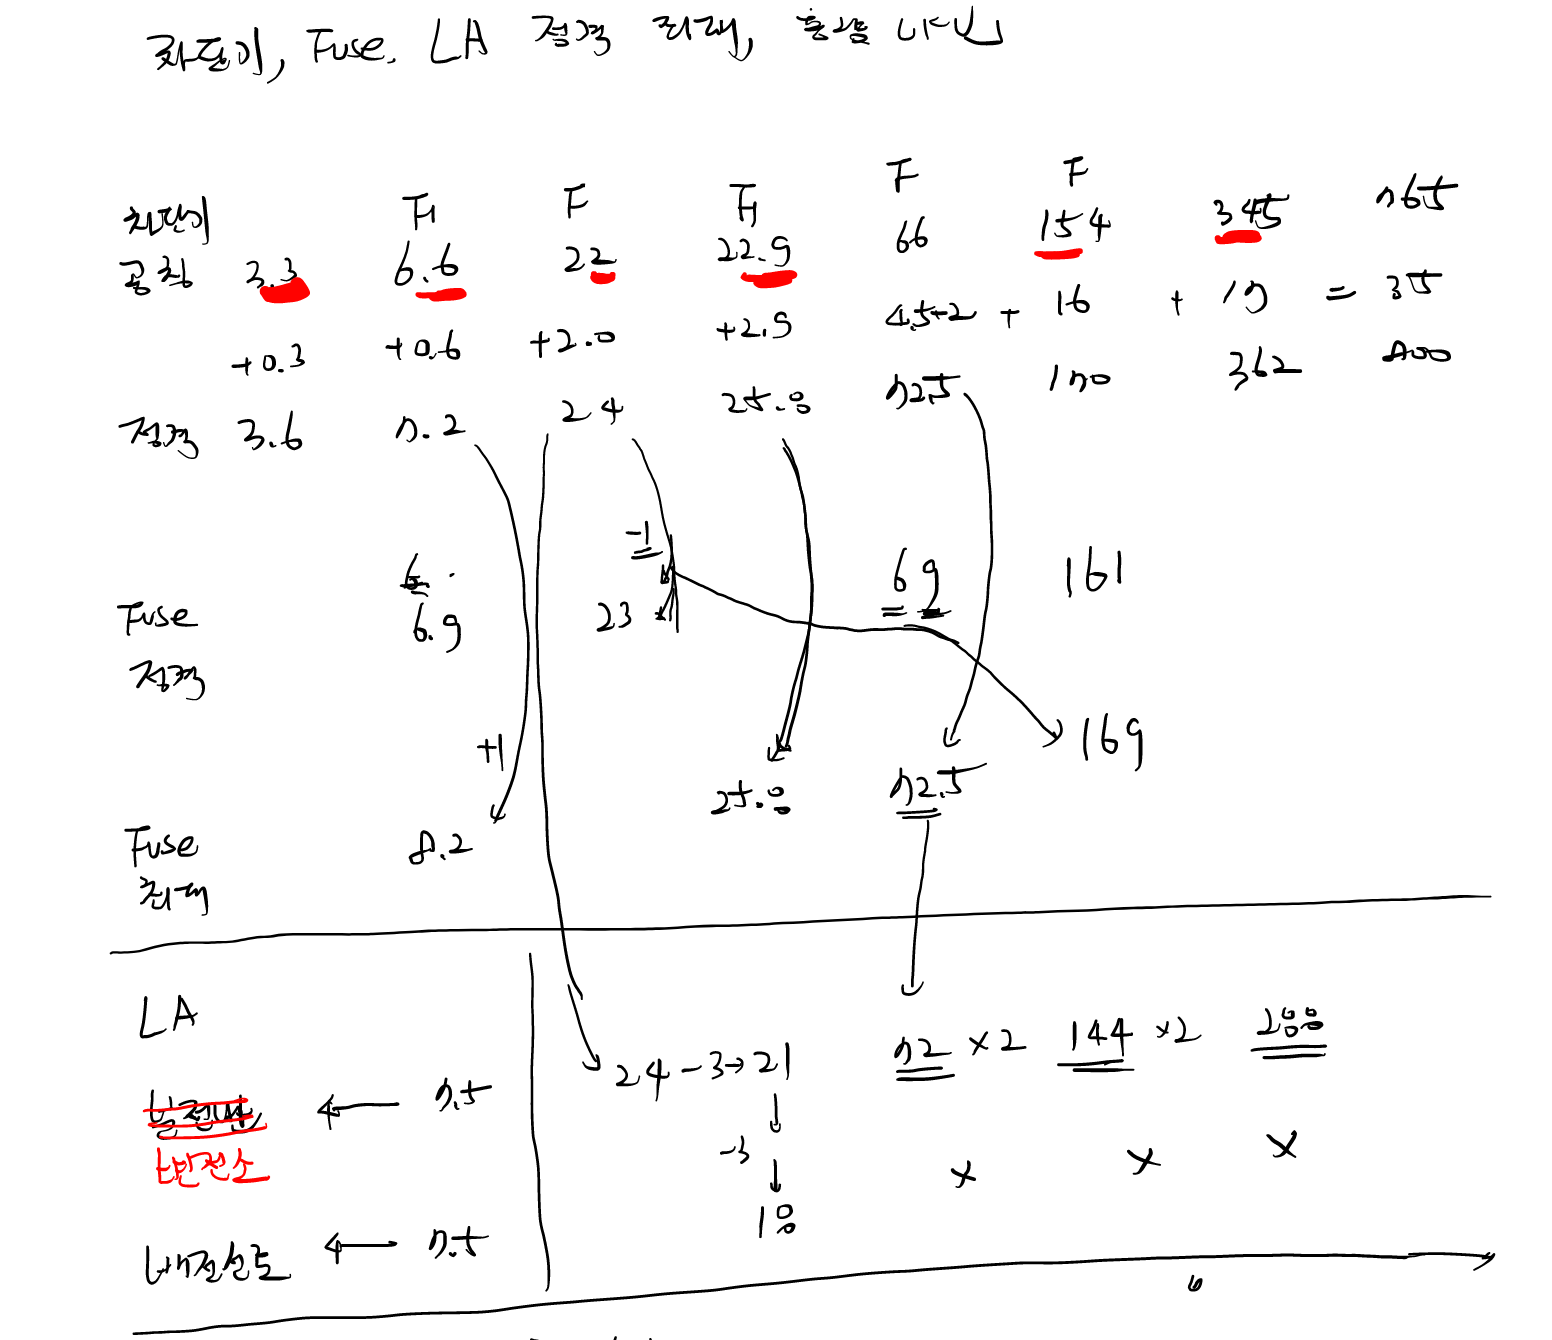 차단기, Fuse, LA 정격 최대, 총정리
F F F F F
차단기
공칭 3.3 6.6 22 22.9 66 154 345 765
+0.3 +0.6 +2.0 +2.9 4.5+2 + 16 + 17 = 35
정격 3.6 7.2 24 25.8 72.5 170 362 800
-1
6.
Fuse 6.9 23 69 161
정격
+1 169
25.8 72.5
Fuse 8.2
최대
LA
24 - 3 → 21 72 × 2 144 × 2 288
← 7.5
변전소 -3 × × ×
18
배전선로 ← 7.5